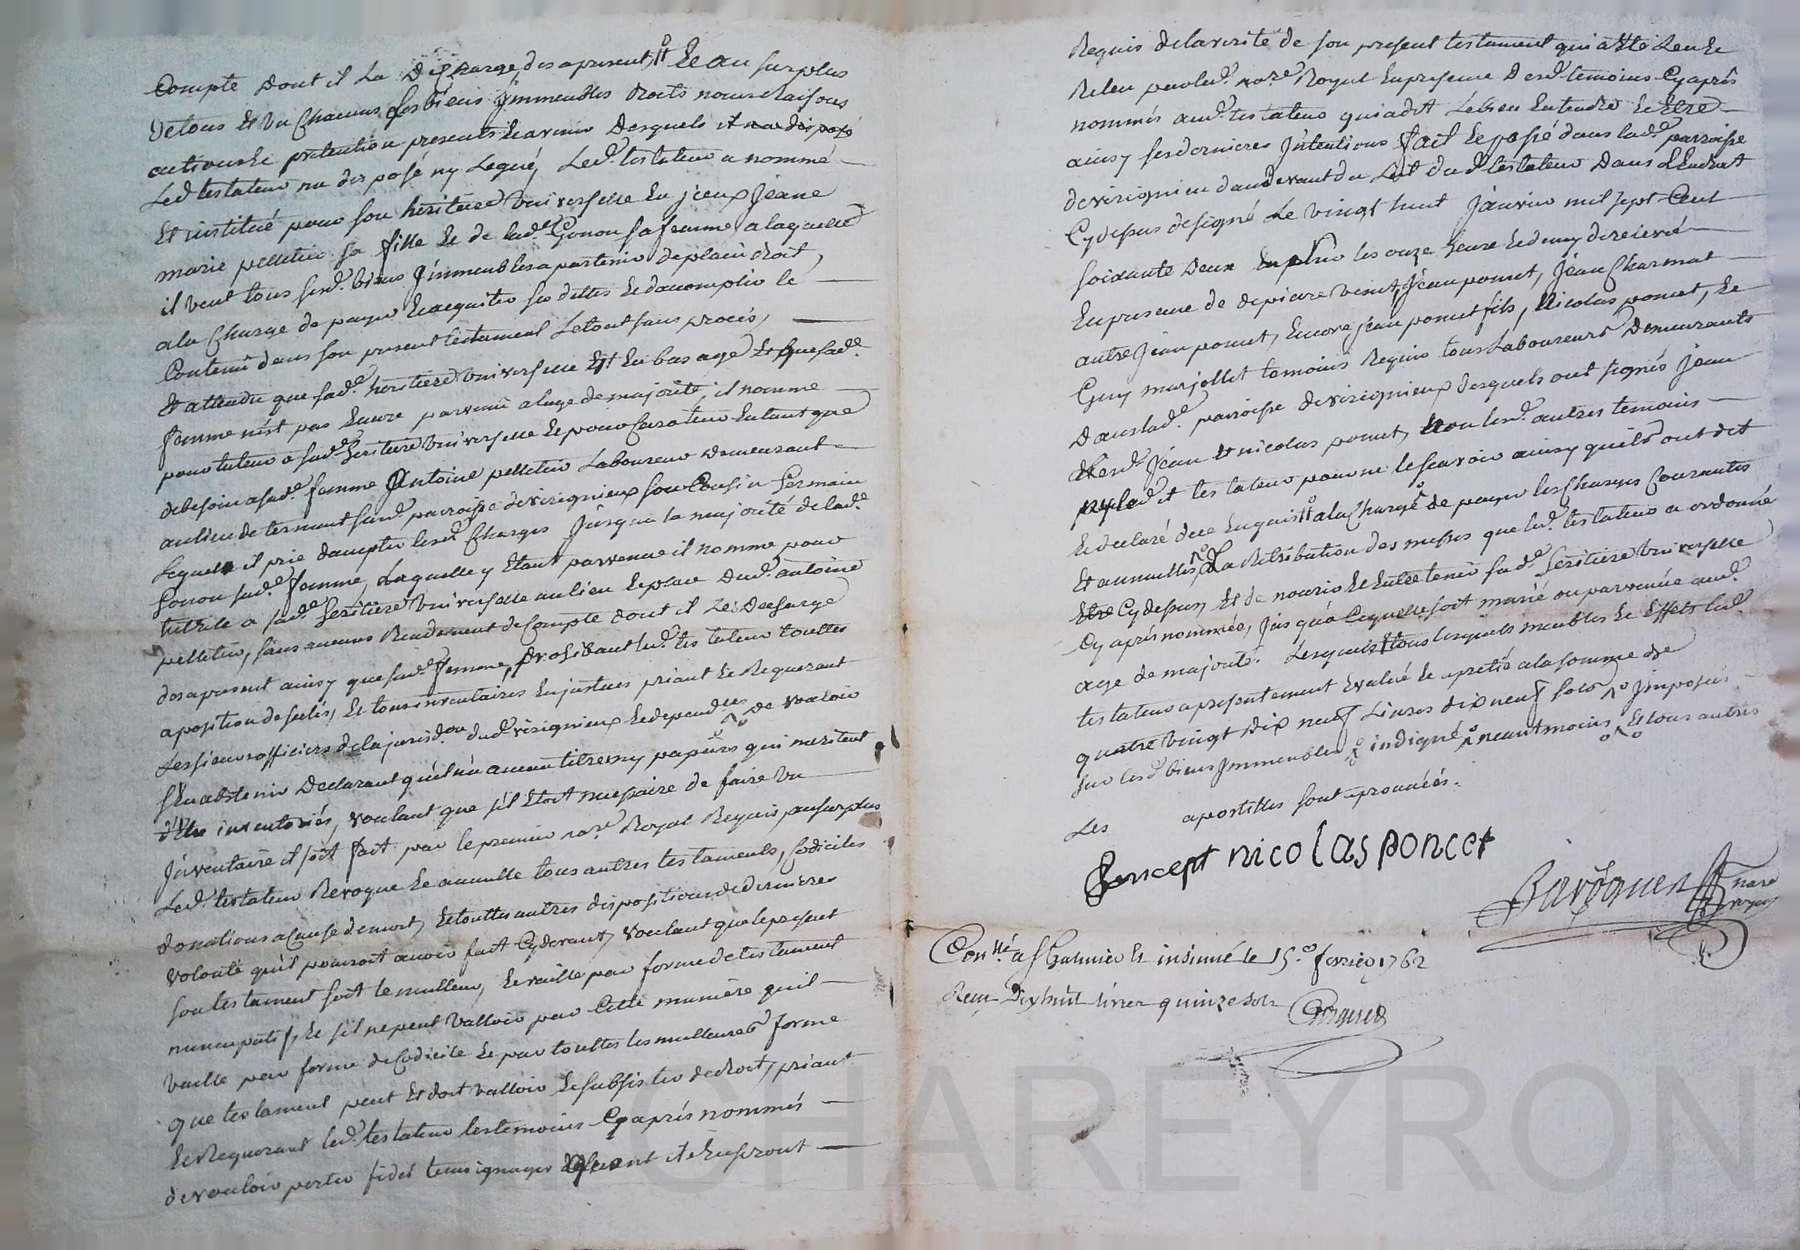 Compte dont il La décharge, des apresent, tt Et au surplus
de tous Et Un Chacuns ses biens Jmmeubles droits noms Raisons
actions Et prétention presents Et avenir desquels il na disposé
Led. testateur na disposé ny Legué, Led. testateur a nommé
Et institué pour son héritiere Universelle En jceux Jeane
marie pelletier sa fille Et de lad.e Gonon sa femme a laquelle
il veut tous sesd. biens Jmmeubles apartenir de plain droit,
a la Charge de payer Et acquiter ses dettes Et dacomplir le
Contenu dans son present testament Le tout sans procés,
Et attendu que sad.e héritiere Universelle Est En bas age Et que sad.e
femme nest pas Encore parvenue a lage de majorité, il nomme
pour tuteur a sad.e héritiere Universelle Et pour Curateur En tant que
de besoin a sad.e femme Antoine pelletier Laboureur demeurant
au lieu de parroisse de virignieux son Cousin Germain
Lequel il prie daccepter lesd. Charges Jusqua la majorité de lad.e
Gonon sad.e femme, Laquelle y Etant parvenue il nomme pour
tutrice a sad.e héritiere Universelle au lieu Et place dud. antoine
pelletier, sans aucuns Rendement de Compte dont il Le décharge
des apresent ainsy que sad.e femme, prohibant led. testateur touttes
aposition de scelés, Et tous inventaires En justices priant Et Requerant
Les sieurs officiers de la jurisd.on dud. virignieux Et dependces de vouloir
s'En abstenir Declarant qu'il n'a aucun titre ny papiers qui meritent
d'Etre inventoriés, voulant que s'il Etoit necessaire de faire Un
Jnventaire il soit fait par le premier no.re Royal Requis, au surplus
Led. testateur Revoque Et annulle tous autres testaments, Codiciles
donations a Cause de mort, Et touttes autres dispositions de derniere
volonté qu'il pouroit avoir fait Cy devant, voulant que le present
son testament soit le meilleur, Et vaille par forme de testament
nuncupatif, Et s'il ne peut valloir par Cette maniere qu'il
vaille par forme de Codicile Et par touttes les meilleures forme
que testament peut Et doit valloir Et subsister de droit, priant
Et Requerant led. testateur les temoins Cy aprés nommés
de vouloir porter fidel temoignages quant ils En seront
Requis de la verité de son present testament qui a Eté Leu Et
Releu par led. no.re Royal En presence desd. temoins Cy aprés
nommés aud. testateur qui a dit Le bien Entendre Et Etre
ainsy ses dernieres Jntentions fait Et passé dans lad.e parroisse
de virignieu dans devant du Lit dud. testateur dans L'Endroit
Cy dessus designé Le vingt huit Janvier mil sept Cent
soixante deux Environ les onze heure Et demy de relevé
En presence de de pierre venet, Jean poncet, Jean Charmat
autre Jean poncet, Encore jean poncet fils, Nicolas poncet, Et
Guy marjollet temoins Requis tous Laboureurs Demeurants
dans lad.e parroisse de virignieux desquels ont signés Jean
Et nicolas poncet, Non lesd. autres temoins
ny led. testateur pour ne le scavoir ainsy quils ont dit
Et declaré de ce Enquis tt a la Charge de payer les Charges Courantes
Et annuelles, La Retribution des messes que led. testateur a ordonné
Etre Cy dessus, Et de nourir Et Entretenir sad.e héritiere Universelle
Cy aprés nommée, jusqu'a Ce quelle soit marié ou parvenüe aud.
age de majorité. Lesquels tous lesquels meubles Et Effets led.
testateur a presentement Evalué Et apretié a la somme de
quatre vingt dix neuf Livres dix neuf sols Jmposés
sur lesd. biens Jmmeubles indigné neantmoins Et tous autres
Les apostilles sont aprouvées.
Poncept nicolas poncet
nare
royal
Con.llé a St Galmier Et insinué le 15.e fevrier 1762
Recu Dix huit livres quinze sols
CHAREYRON